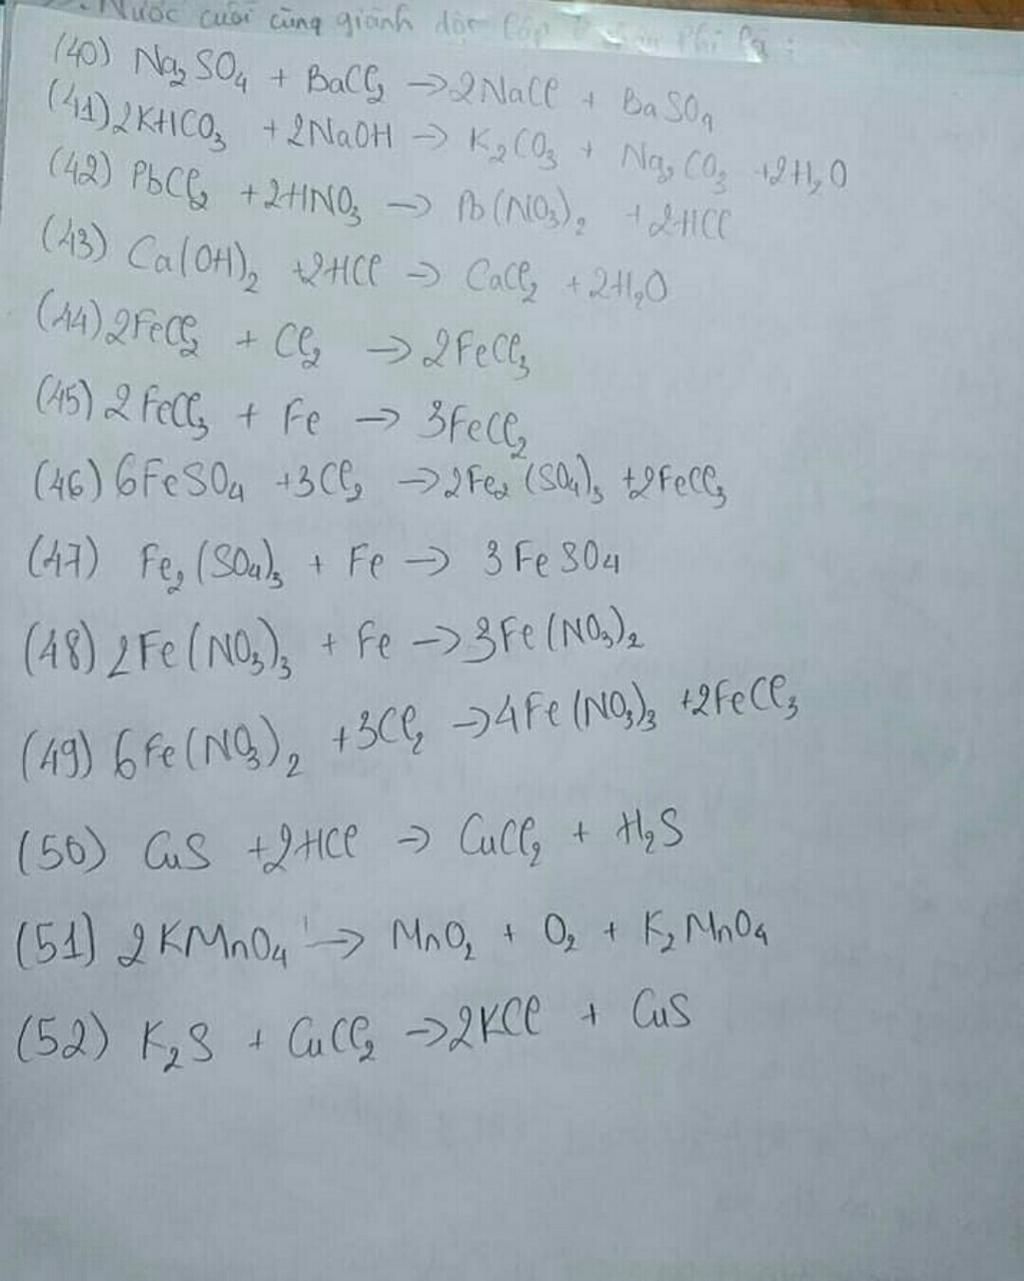 Nước cuối cùng giành độc lập Phi là :
(40) Na₂SO₄ + BaCl₂ → 2NaCl + BaSO₄
(41) 2KHCO₃ + 2NaOH → K₂CO₃ + Na₂CO₃ + 2H₂O
(42) PbCl₂ + 2HNO₃ → Pb(NO₃)₂ + 2HCl
(43) Ca(OH)₂ + 2HCl → CaCl₂ + 2H₂O
(44) 2FeCl₂ + Cl₂ → 2FeCl₃
(45) 2FeCl₃ + Fe → 3FeCl₂
(46) 6FeSO₄ + 3Cl₂ → 2Fe₂(SO₄)₃ + 2FeCl₃
(47) Fe₂(SO₄)₃ + Fe → 3FeSO₄
(48) 2Fe(NO₃)₃ + Fe → 3Fe(NO₃)₂
(49) 6Fe(NO₃)₂ + 3Cl₂ → 4Fe(NO₃)₃ + 2FeCl₃
(50) CuS + 2HCl → CuCl₂ + H₂S
(51) 2KMnO₄ → MnO₂ + O₂ + K₂MnO₄
(52) K₂S + CuCl₂ → 2KCl + CuS